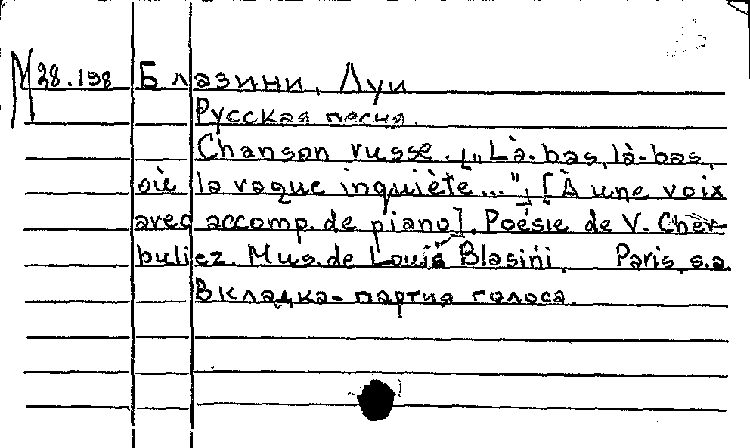 М 28.198 Блазини, Луи
Русская песня.
Chanson russe. [„Là-bas, là-bas,
où la vague inquiète...“]. [À une voix
avec accomp. de piano]. Poésie de V. Cher-
buliez. Mus. de Louis Blasini. Paris, s.a.
Вкладка-партия голоса.